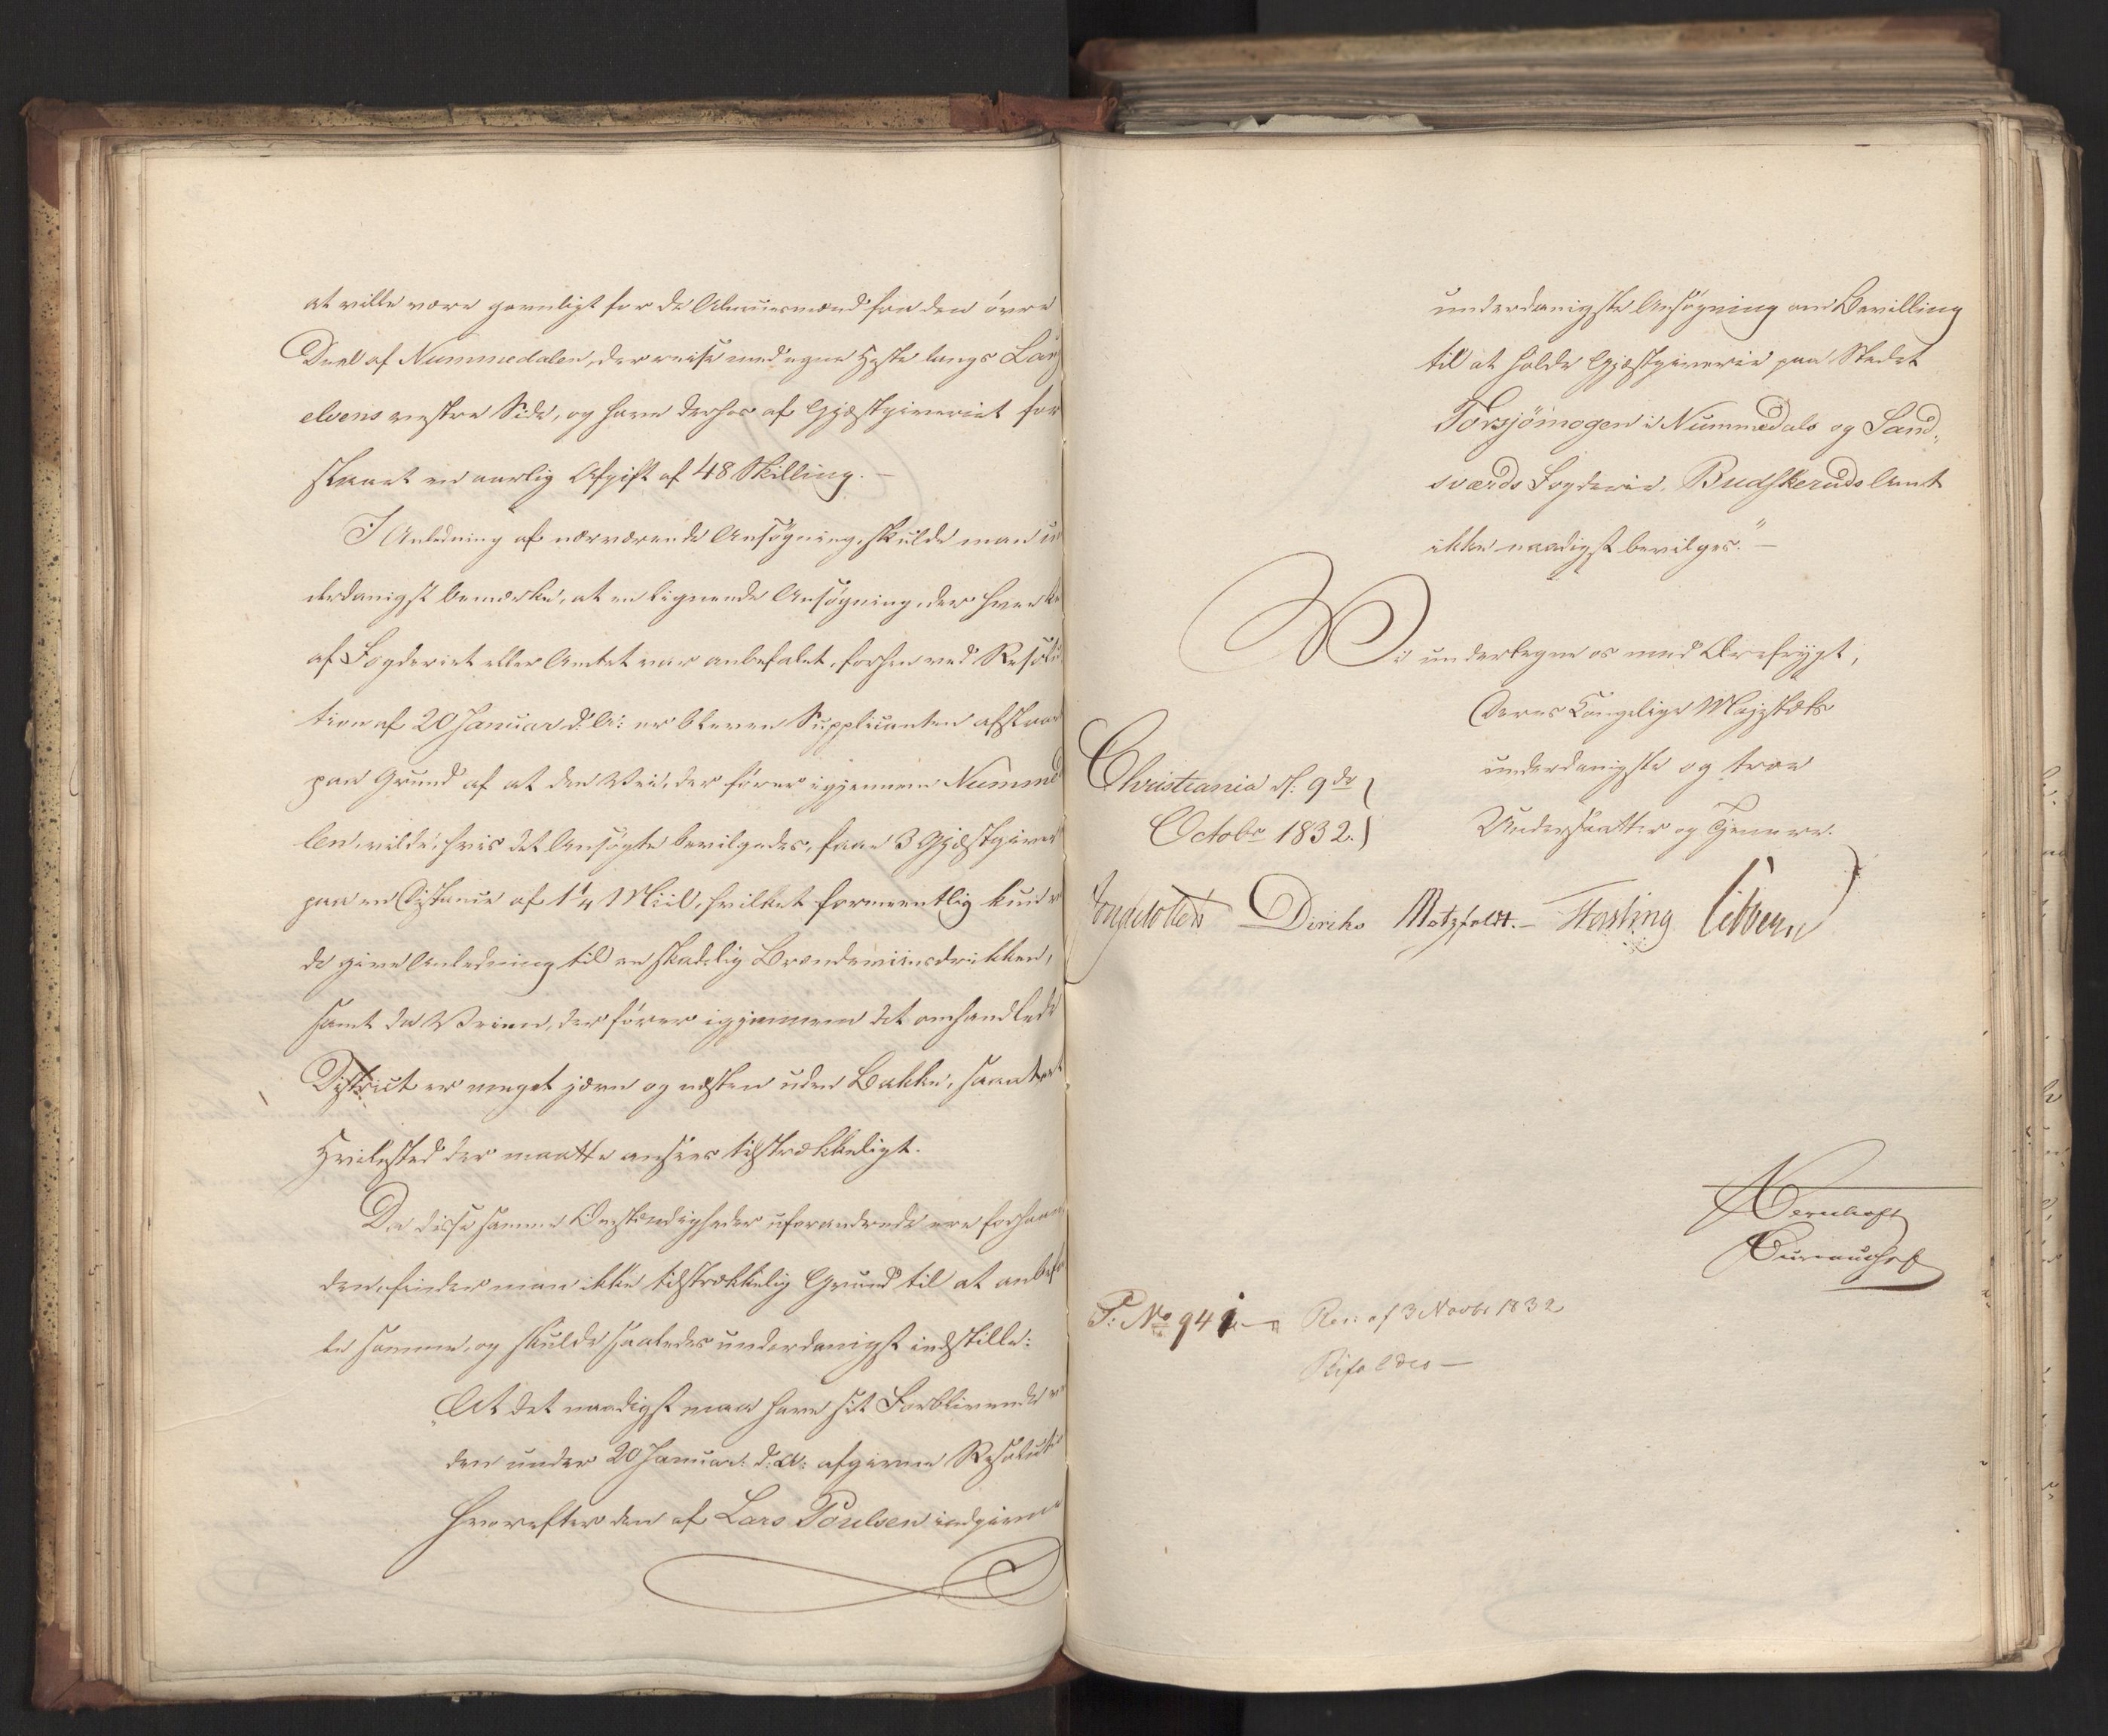 at ville være gavnligt for de Almuesmænd fra den øvre
Deel af Nummedalen, der reise med egne Heste langs Lau
elvens vestre Side, og have derhos af Gjæstgiveriet for
slaaet en aarlig Afgift af 48 Skilling. —
I Anledning af nærværende Ansøgning, skulde man un
derdanigst bemærke, at en lignende Ansøgning, der hverke
af Fogderiet eller Amtet var anbefalet, forhen ved Resolu
tion af 20 Januar d: A: er bleven Supplicanten afslaaet
paa Grund af at den Vei, der fører igjennem Nummeda
len, vilde, hvis det Ansøgte bevilgedes, faae 3 Gjæstgiver
paa en Distance af 1¼ Miil, hvilket formeentlig kun
de give Anledning til en skadelig Brændeviinsdrikken,
samt da Veien, der fører igjennem det omhandlede
District er meget jævn og næsten uden Bakke, saa at et
Hvilested der maatte ansees tilstrækkeligt.
Da disse samme Omstændigheder uforandrede ere forhaan
den, finder man ikke tilstrækkelig Grund til at anbefa
le samme, og skulde saaledes underdanigst indstille:
„At det naadigst maa have sit Forblivende ve
den under 20 Januar d: A: afgivne Resoluti
hvorefter den af Lars Poulsen indgivne
underdanigste Ansøgning om Bevilling
til at holde Gjæstgiverie paa Stedet
Torsjömogen i Nummedals og Sand-
sværds Fogderie, Budskeruds Amt
ikke naadigst bevilges." —
Vi undertegne os med Ærefrygt,
Deres Kongelige Majestæts
underdanigste og troe
Undersaatter og Tjenere.
Christiania d: 9de
Octobr 1832.
Diriks Motzfeldt. — Hasting Sibbern
Bureauchef
P: No 941 — Res: af 3 Novbr 1832
Bifaldes —